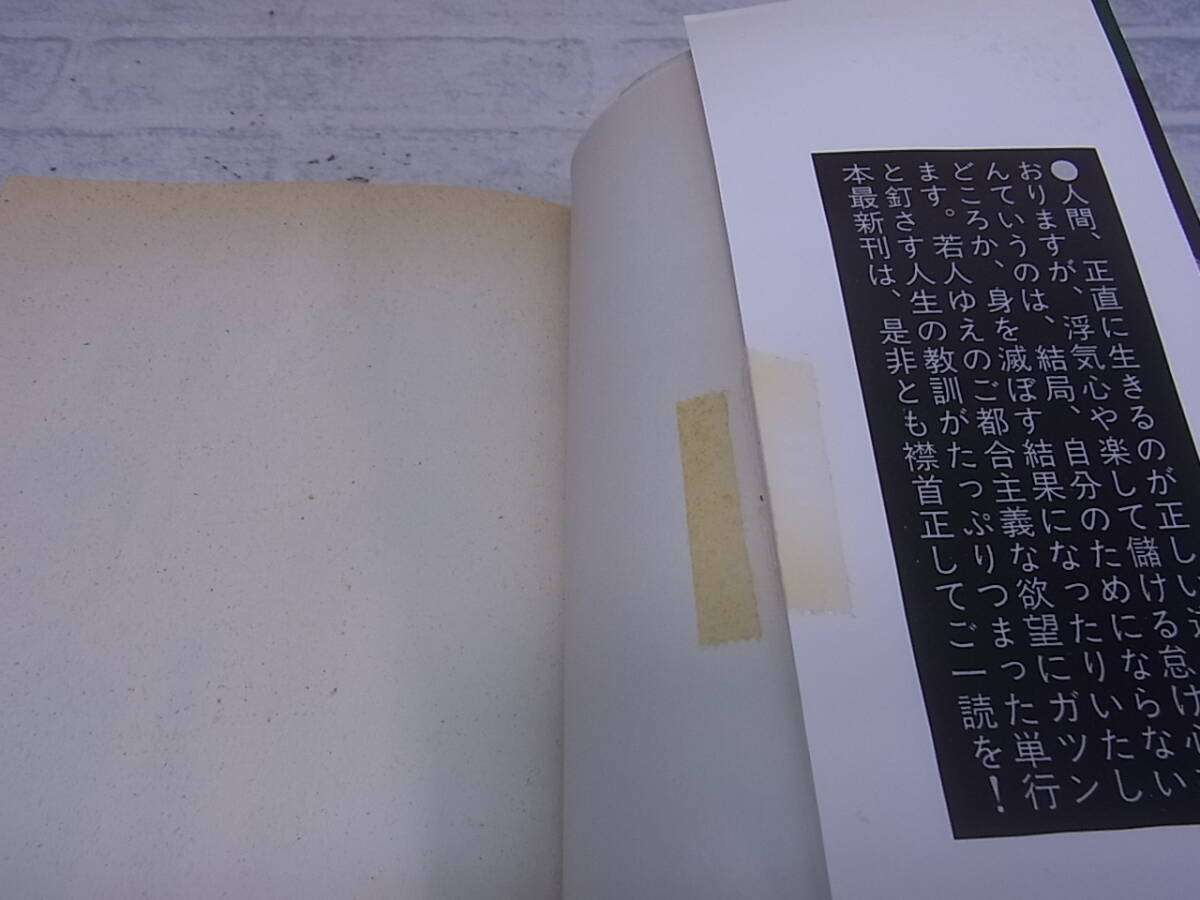 ●人間、正直に生きるのが正しい
おりますが、浮気心や楽して儲ける怠け心
んていうのは、結局、自分のためにならない
どころか、身を滅ぼす結果になったりいたし
ます。若人ゆえのご都合主義な欲望にガツン
と釘さす人生の教訓がたっぷりつまった単行
本最新刊は、是非とも襟首正してご一読を！